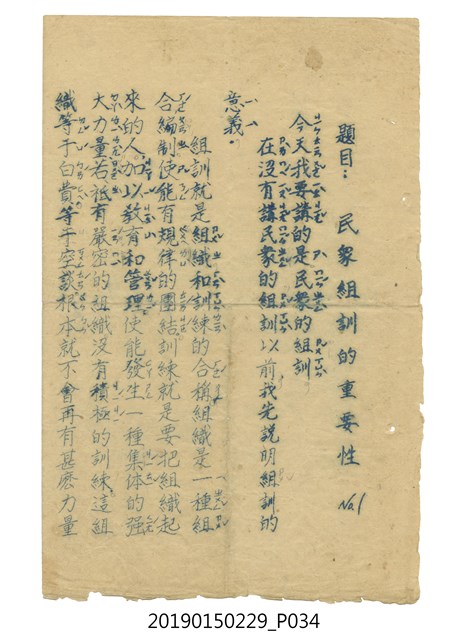 題目：民衆組訓的重要性 No.1
今天我要講的是民衆的組訓
在沒有講民衆的組訓以前我先説明組訓的
意義．
組訓就是組織和訓練的合稱組織是一種組
合編制使能有規律的團結訓練就是要把組織起
來的人加以教育和管理使能發生一種集体的强
大力量若祇有嚴密的組織沒有積極的訓練這組
織等于白費等于空談根本就不會再有甚麽力量
20190150229_P034